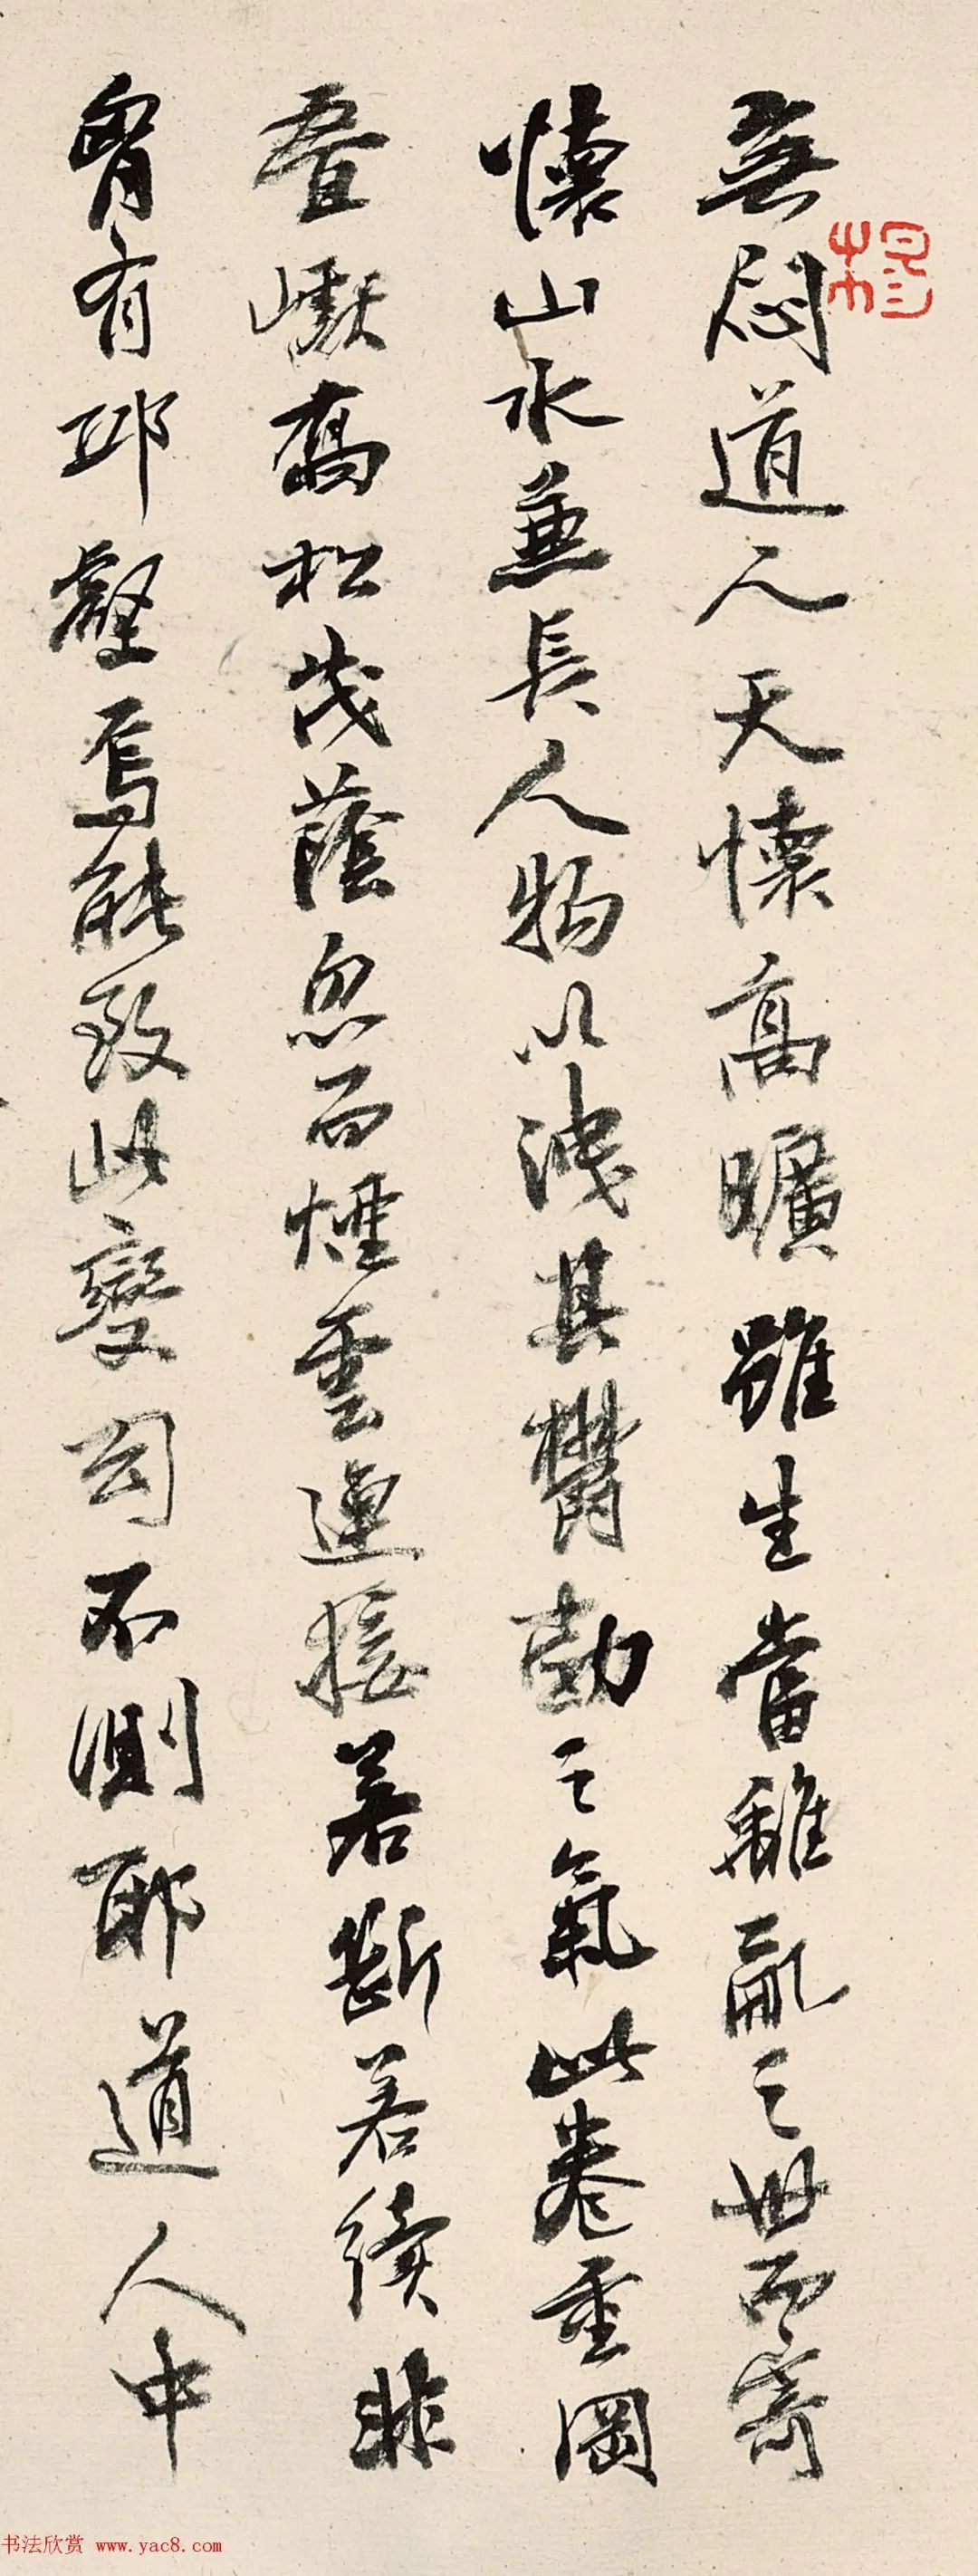 無悶道人天懷高曠雖生當離亂之世而寄
懷山水兼長人物以洩其鬱勃之氣此卷重岡
疊巘喬松茂蔭忽而煙雲連接若斷若續非
胷有邱壑焉能致此變幻不測耶道人中
穆
书法欣赏 www.yac8.com